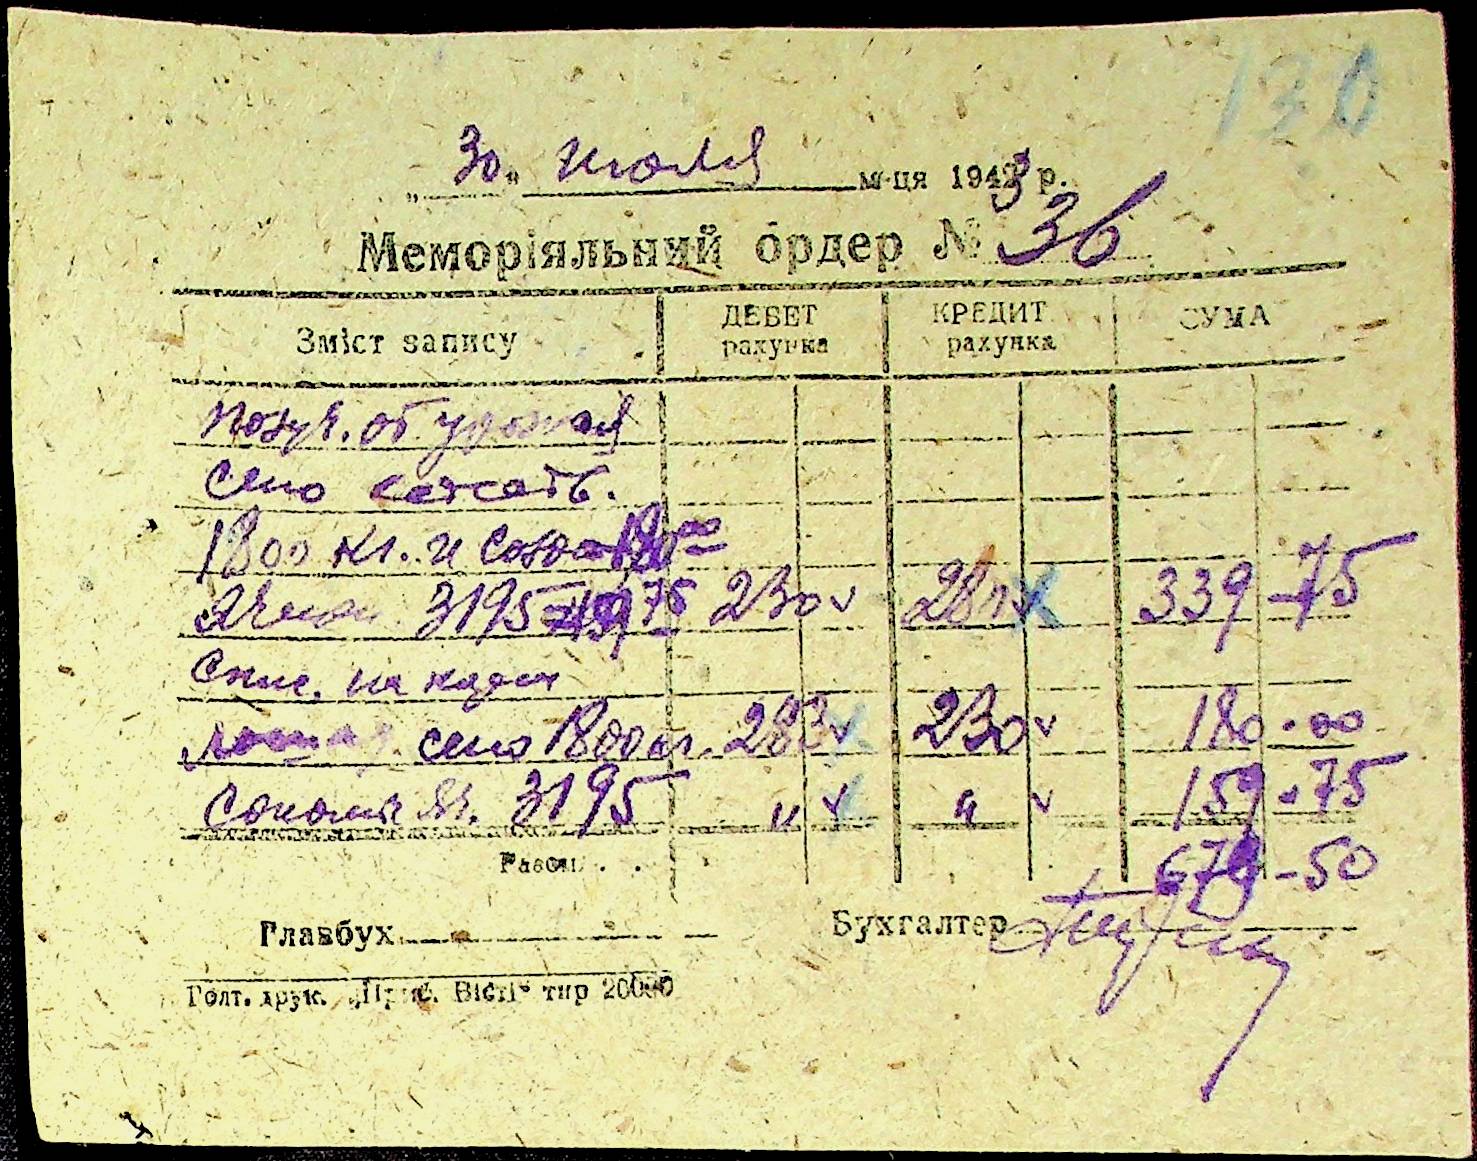 130
„30„ июля м-ця 1943 р.
Меморіяльний ордер № 36
Зміст запису ДЕБЕТ рахунка КРЕДИТ рахунка СУМА
от урожая
сено
1800 кг. и 180 00
3195 = 159 75 230 v 339 - 75
Спис. на
сено 1800 кг. 283 v 230 v 180 - 00
Соломы яч. 3195 " v " v 159 - 75
Разом . . 679 - 50
Главбух Бухгалтер
Голт. друк. „Приб. Вісті“ тир 20000